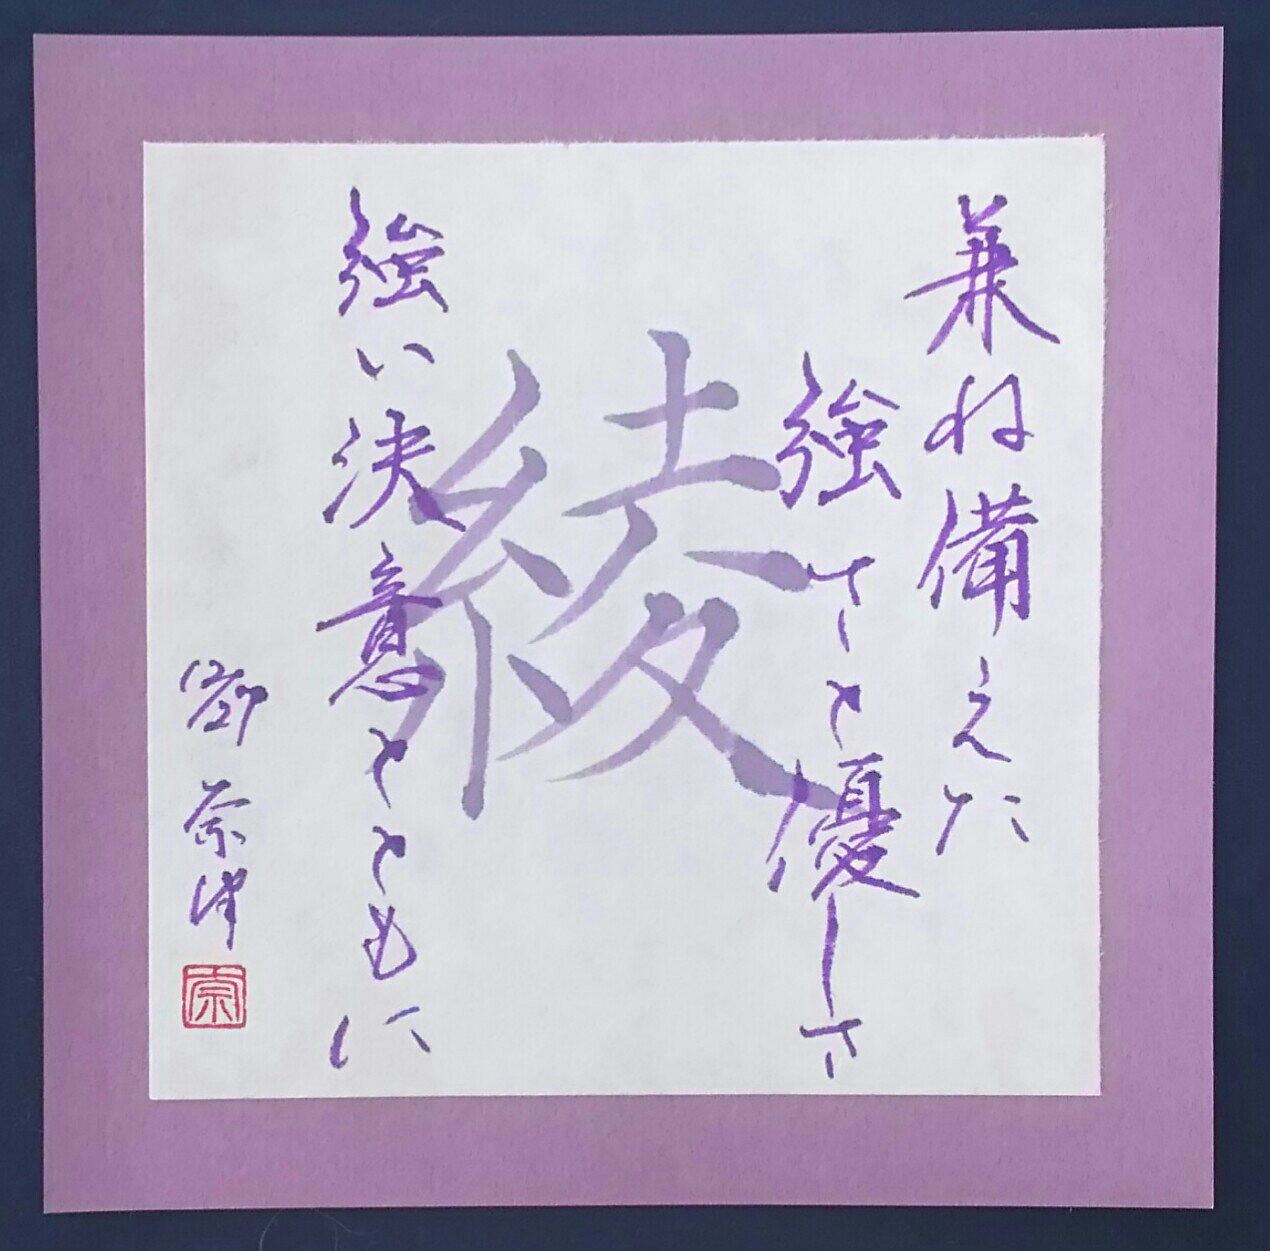 兼ね備えた
強さと優しさ
綾
強い決意とともに
奈津
奈